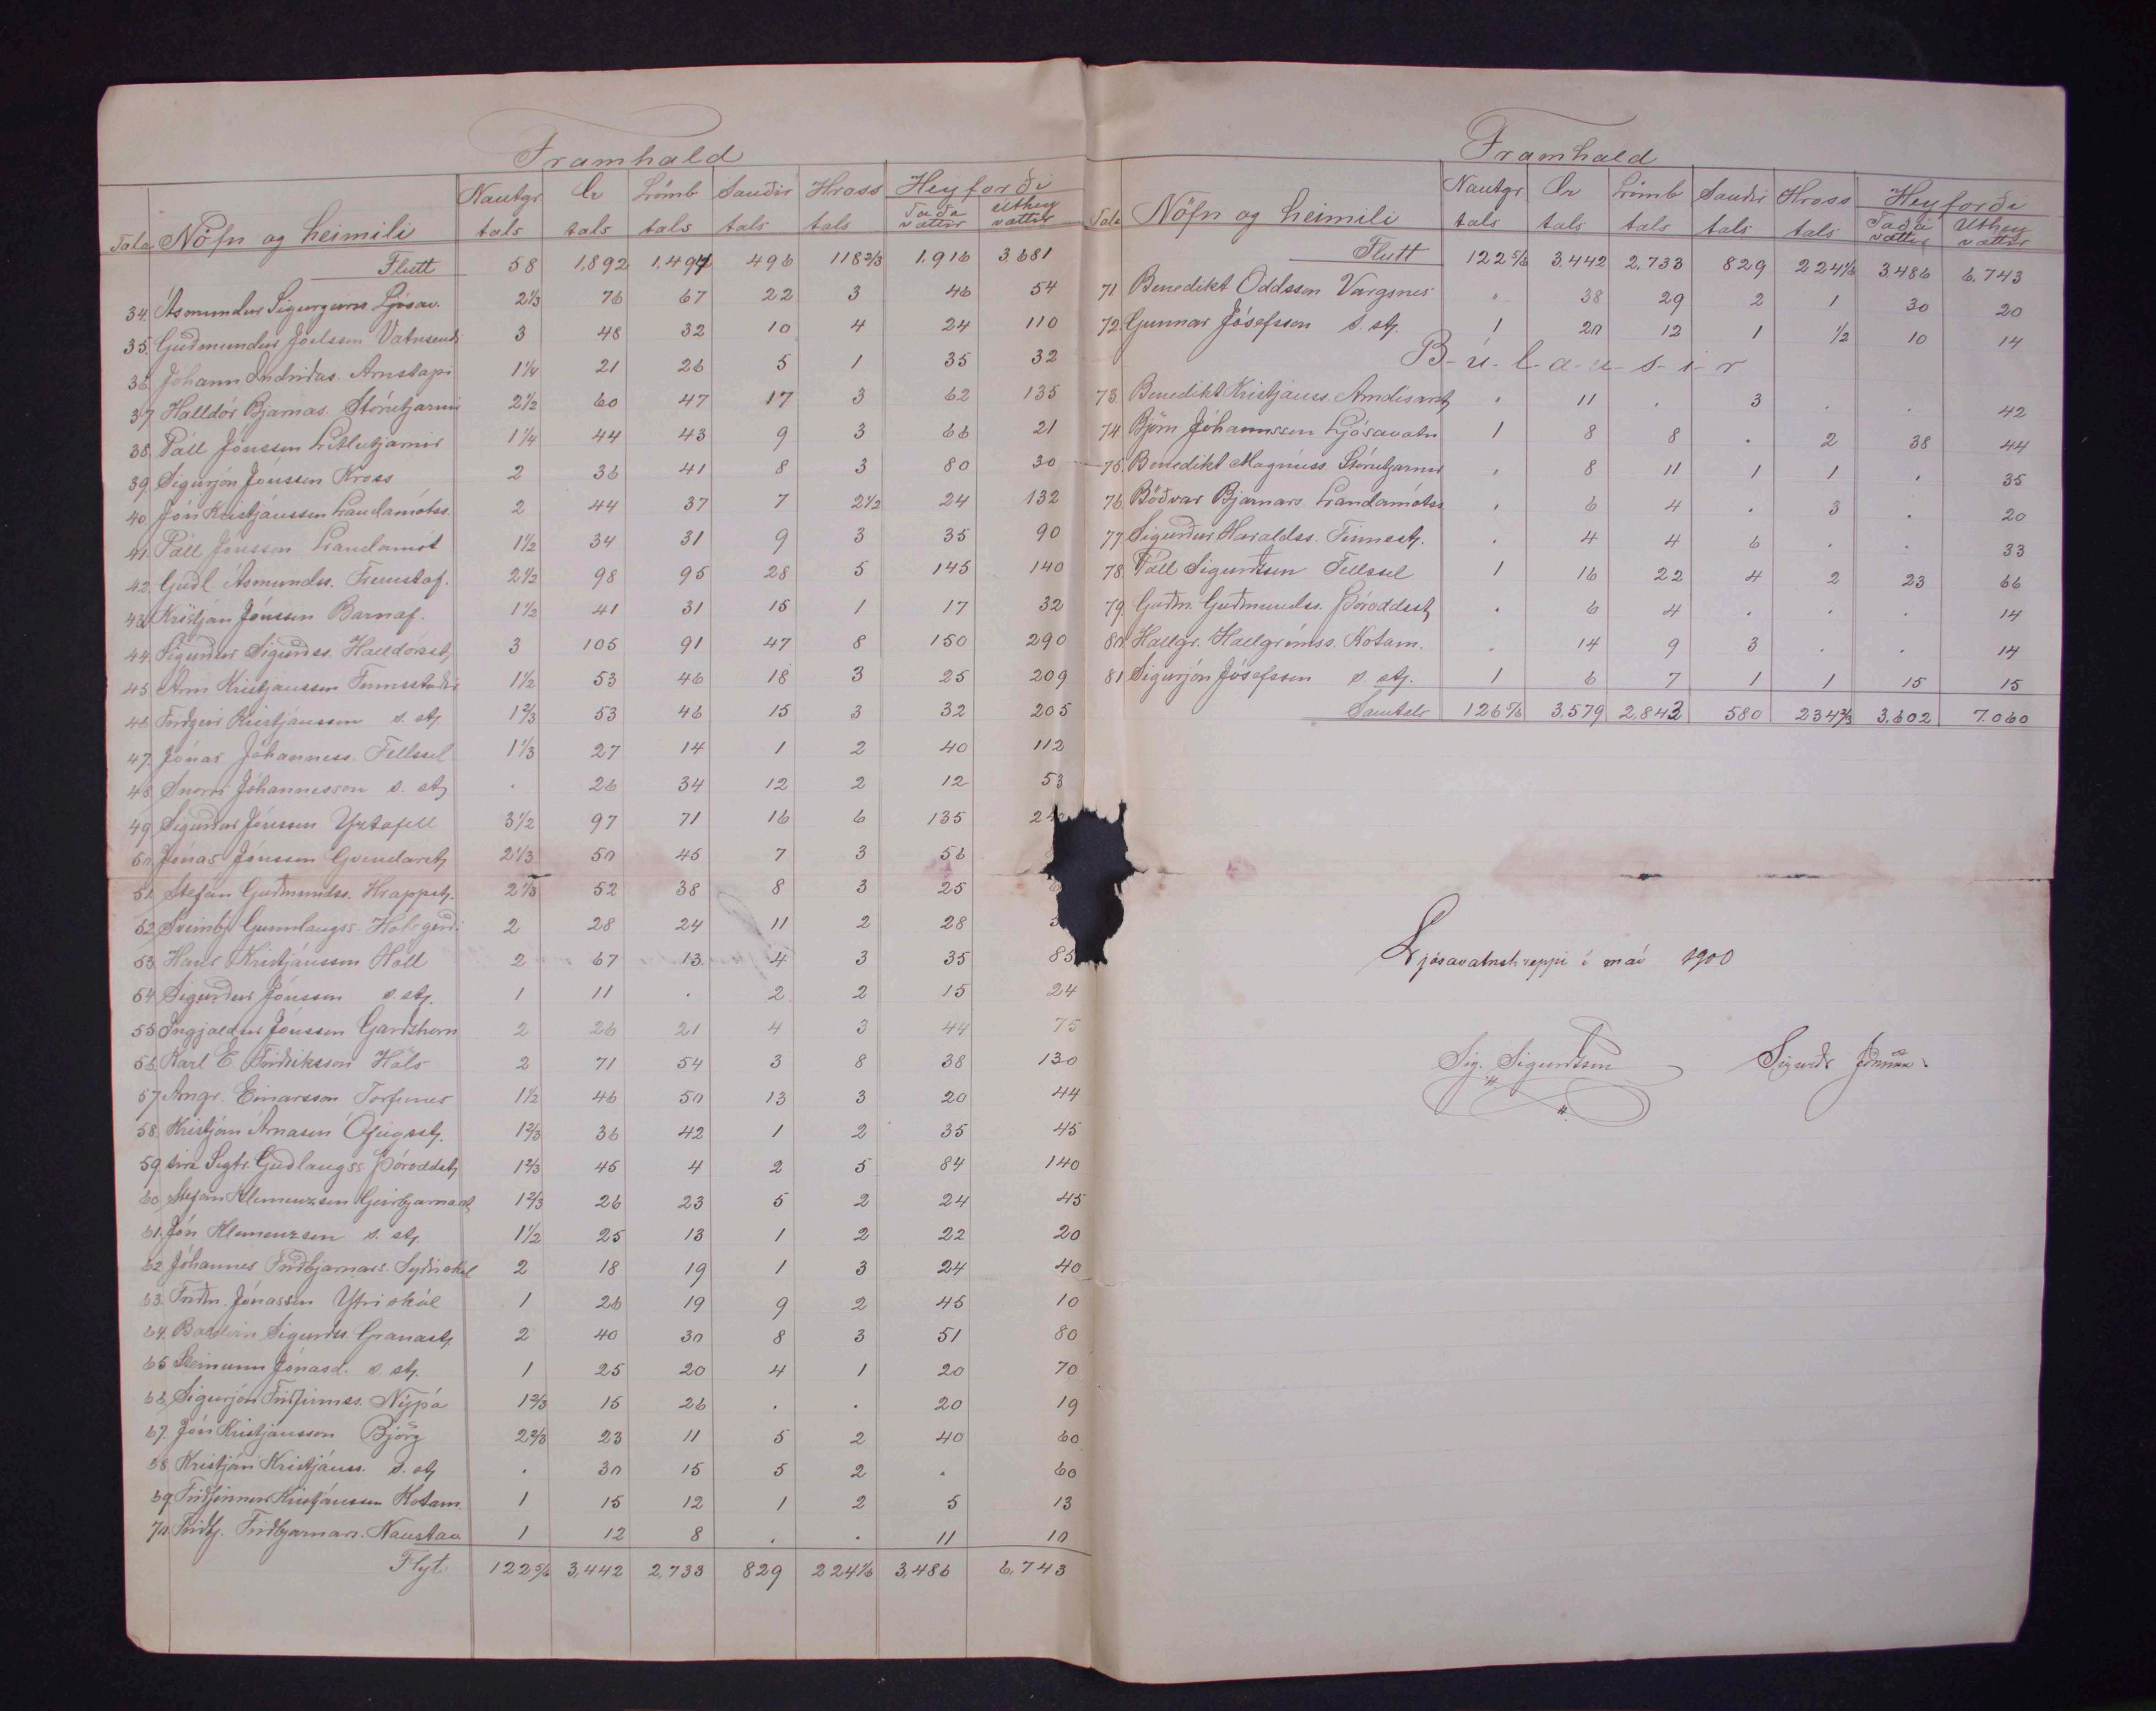 Framhald
Tala Nöfn og heimili Nautgr tals Ær tals Lömb tals Sauðir tals Hross tals Heyforði Taða vættir Úthey vættir
Flutt 58 1,892 1,494 496 118 2/3 1,916 3.681
34. Ásmundur Sigurgeirss Ljósav. 2 1/3 76 67 22 3 46 54
35. Guðmundur Jóelsson Vatnsendi 3 48 32 10 4 24 110
36. Jóhann Indriðas. Arnstapi 1 1/4 21 26 5 1 35 32
37 Halldór Bjarnas. Stórutjarnir 2 1/2 60 47 17 3 62 135
38. Páll Jónsson Litlutjarnir 1 1/4 44 43 9 3 66 21
39. Sigurjón Jónsson Kross 2 36 41 8 3 80 30
40 Jón Kristjánsson Landamótss. 2 44 37 7 2 1/2 24 132
41 Páll Jónsson Landamót 1 1/2 34 31 9 3 35 90
42. Guðl Ásmundss. Fremstaf. 2 1/2 98 95 28 5 145 140
43. Kristján Jónsson Barnaf. 1 1/2 41 31 15 1 17 32
44. Sigurður Sigurðss. Halldórsst, 3 105 91 47 8 150 290
45 Árni Kristjánsson Finnsstaðir 1 1/2 53 46 18 3 25 209
46 Friðgeir Kristjánsson s. stj 1 2/3 53 46 15 3 32 205
47. Jónas Jóhanness. Fellssel 1 1/3 27 14 1 2 40 112
48 Snorri Jóhannesson s. stj . 26 34 12 2 12 53
49 Sigurður Jónsson Yztafell 3 1/2 97 71 16 6 135 24
50 Jónas Jónsson Gvendarstj 2 1/3 50 45 7 3 56
51. Stefán Guðmundss. Hrappstj. 2 1/3 52 38 8 3 25
52 Sveinbj Gunnlaugss. Hálsgerði 2 28 24 11 2 28
53. Hans Kristjánsson Hóll 2 67 13 4 3 35 85
54. Sigurður Jónsson s. stj. 1 11 . 2 2 15 24
55 Ingjaldur Jónsson Garðshorn 2 26 21 4 3 44 75
56. Karl E. Friðriksson Háls 2 71 54 3 8 38 130
57 Arngr. Einarsson Torfunes 1 1/2 46 50 13 3 20 44
58. Kristján Árnason Ófeigsstj. 1 2/3 36 42 1 2 35 45
59. síra Sigtr. Guðlaugss Þóroddstj 1 2/3 45 4 2 5 84 140
60 Stefán Klemenzson Geirbjarnarst 1 2/3 26 23 5 2 24 45
61. Jón Klemenzson s. stj. 1 1/2 25 13 1 2 22 20
62 Jóhannes Friðbjarnars. Syðriskál 2 18 19 1 3 24 40
63. Friðn. Jónasson Ytriskál 1 26 19 9 2 45 10
64. Baldvin Sigurðss. Granastj. 2 40 30 8 3 51 80
65 Steinunn Jónasd. s. stj. 1 25 20 4 1 20 70
66 Sigurjón Friðfinnss. Nýpá 1 2/3 15 26 . . 20 19
67. Jón Kristjánsson Björg 2 2/3 23 11 5 2 40 60
68. Kristján Kristjánss. s. stj . 30 15 5 2 . 60
69. Friðfinnur Kristjánsson Kotam. 1 15 12 1 2 5 13
70. Friðbj. Friðbjarnars. Naustav. 1 12 8 . . 11 10
Flyt. 122 5/6 3,442 2,733 829 224 1/6 3,486 6,743
Framhald
Tala Nöfn og heimili Nautgr. tals Ær tals Lömb tals Sauðir tals Hross tals Heyforði Taða vættir Úthey vættir
Flutt 122 5/6 3.442 2,733 829 224 1/6 3.486 6,743
71 Benedikt Oddsson Vargsnes " 38 29 2 1 30 20
72. Gunnar Jósefsson s. stj. 1 20 12 1 1/2 10 14
B-ú-l-a-u-s-i-r
73. Benedikt Kristjánss Arndísarstj . 11 . 3 . . 42
74 Björn Jóhannsson Ljósavatn 1 8 8 . 2 38 44
75. Benedikt Magnúss. Stórutjarnir . 8 11 1 1 . 35
76. Böðvar Bjarnars. Landamótss . 6 4 . 3 . 20
77 Sigurður Haraldss. Finnsstj. . 4 4 6 . . 33
78. Páll Sigurðsson Fellssel 1 16 22 4 2 23 66
79. Guðm. Guðmundss. Þóroddstj . 6 4 . . . 14
80. Hallgr. Hallgrímss. Kotam. . 14 9 3 . . 14
81 Sigurjón Jósefsson s. stj. 1 6 7 1 1 15 15
Samtals 126 5/6 3.579 2,842 580 234 2/3 3,602 7.060
Ljósavatnshreppi í maí 1900
Sig. Sigurðsson Sigurðr Jónsson